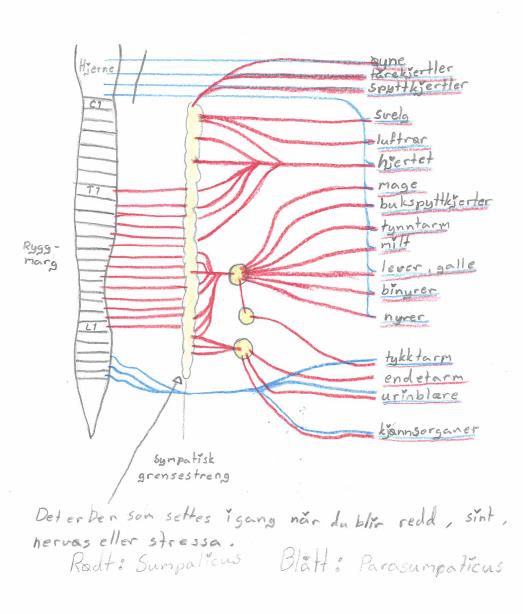 Hjerne
øyne
tårekjertler
spyttkjertler
C1
svelg
luftrør
hjertet
T1
mage
bukspyttkjertler
tynntarm
milt
Rygg-
marg
lever, galle
binyrer
nyrer
L1
tykktarm
endetarm
urinblære
kjønnsorganer
Sympatisk
grensestreng
Det er Den som settes i gang når du blir redd, sint,
nervøs eller stressa.
Rødt: Sumpaticus Blått: Parasumpaticus